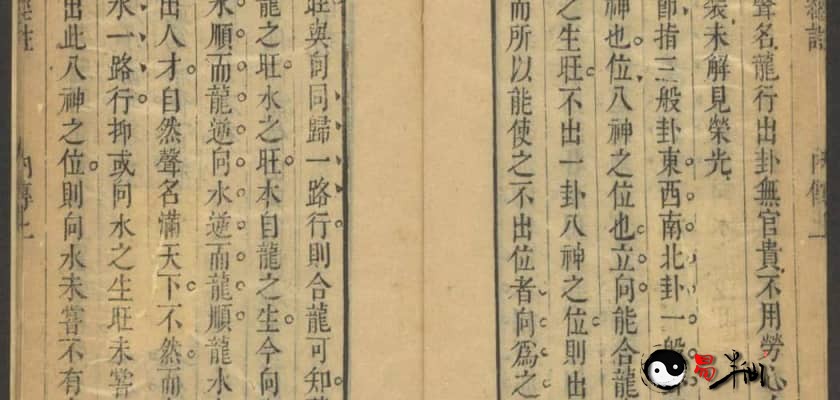 聲名龍行出卦無官貴不用勞心
裝未解見榮光
節指三般卦東西南北卦一般
神也位八神之位也立向能合龍
之生旺不出一卦八神之位則出
而所以能使之不出位者向為之
旺與向同歸一路行則合龍可知
龍之旺水之旺本自龍之生今向
水順而龍逆向水逆而龍順龍水
出人才自然聲名滿天下不然而
水一路行抑或向水之生旺未嘗
出此八神之位則向水未嘗不有
內傳